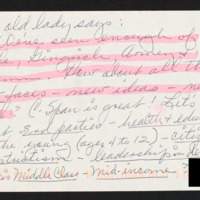 old lady says:
seen enough of
, Gingrich, Armey &
. How about all th
faces - new ideas - ne
? C-Span is great! Let's
t End parties - health + educ
the young (ages 4 to 12) - citi
- leadership in
is Middle Class - Mid-income